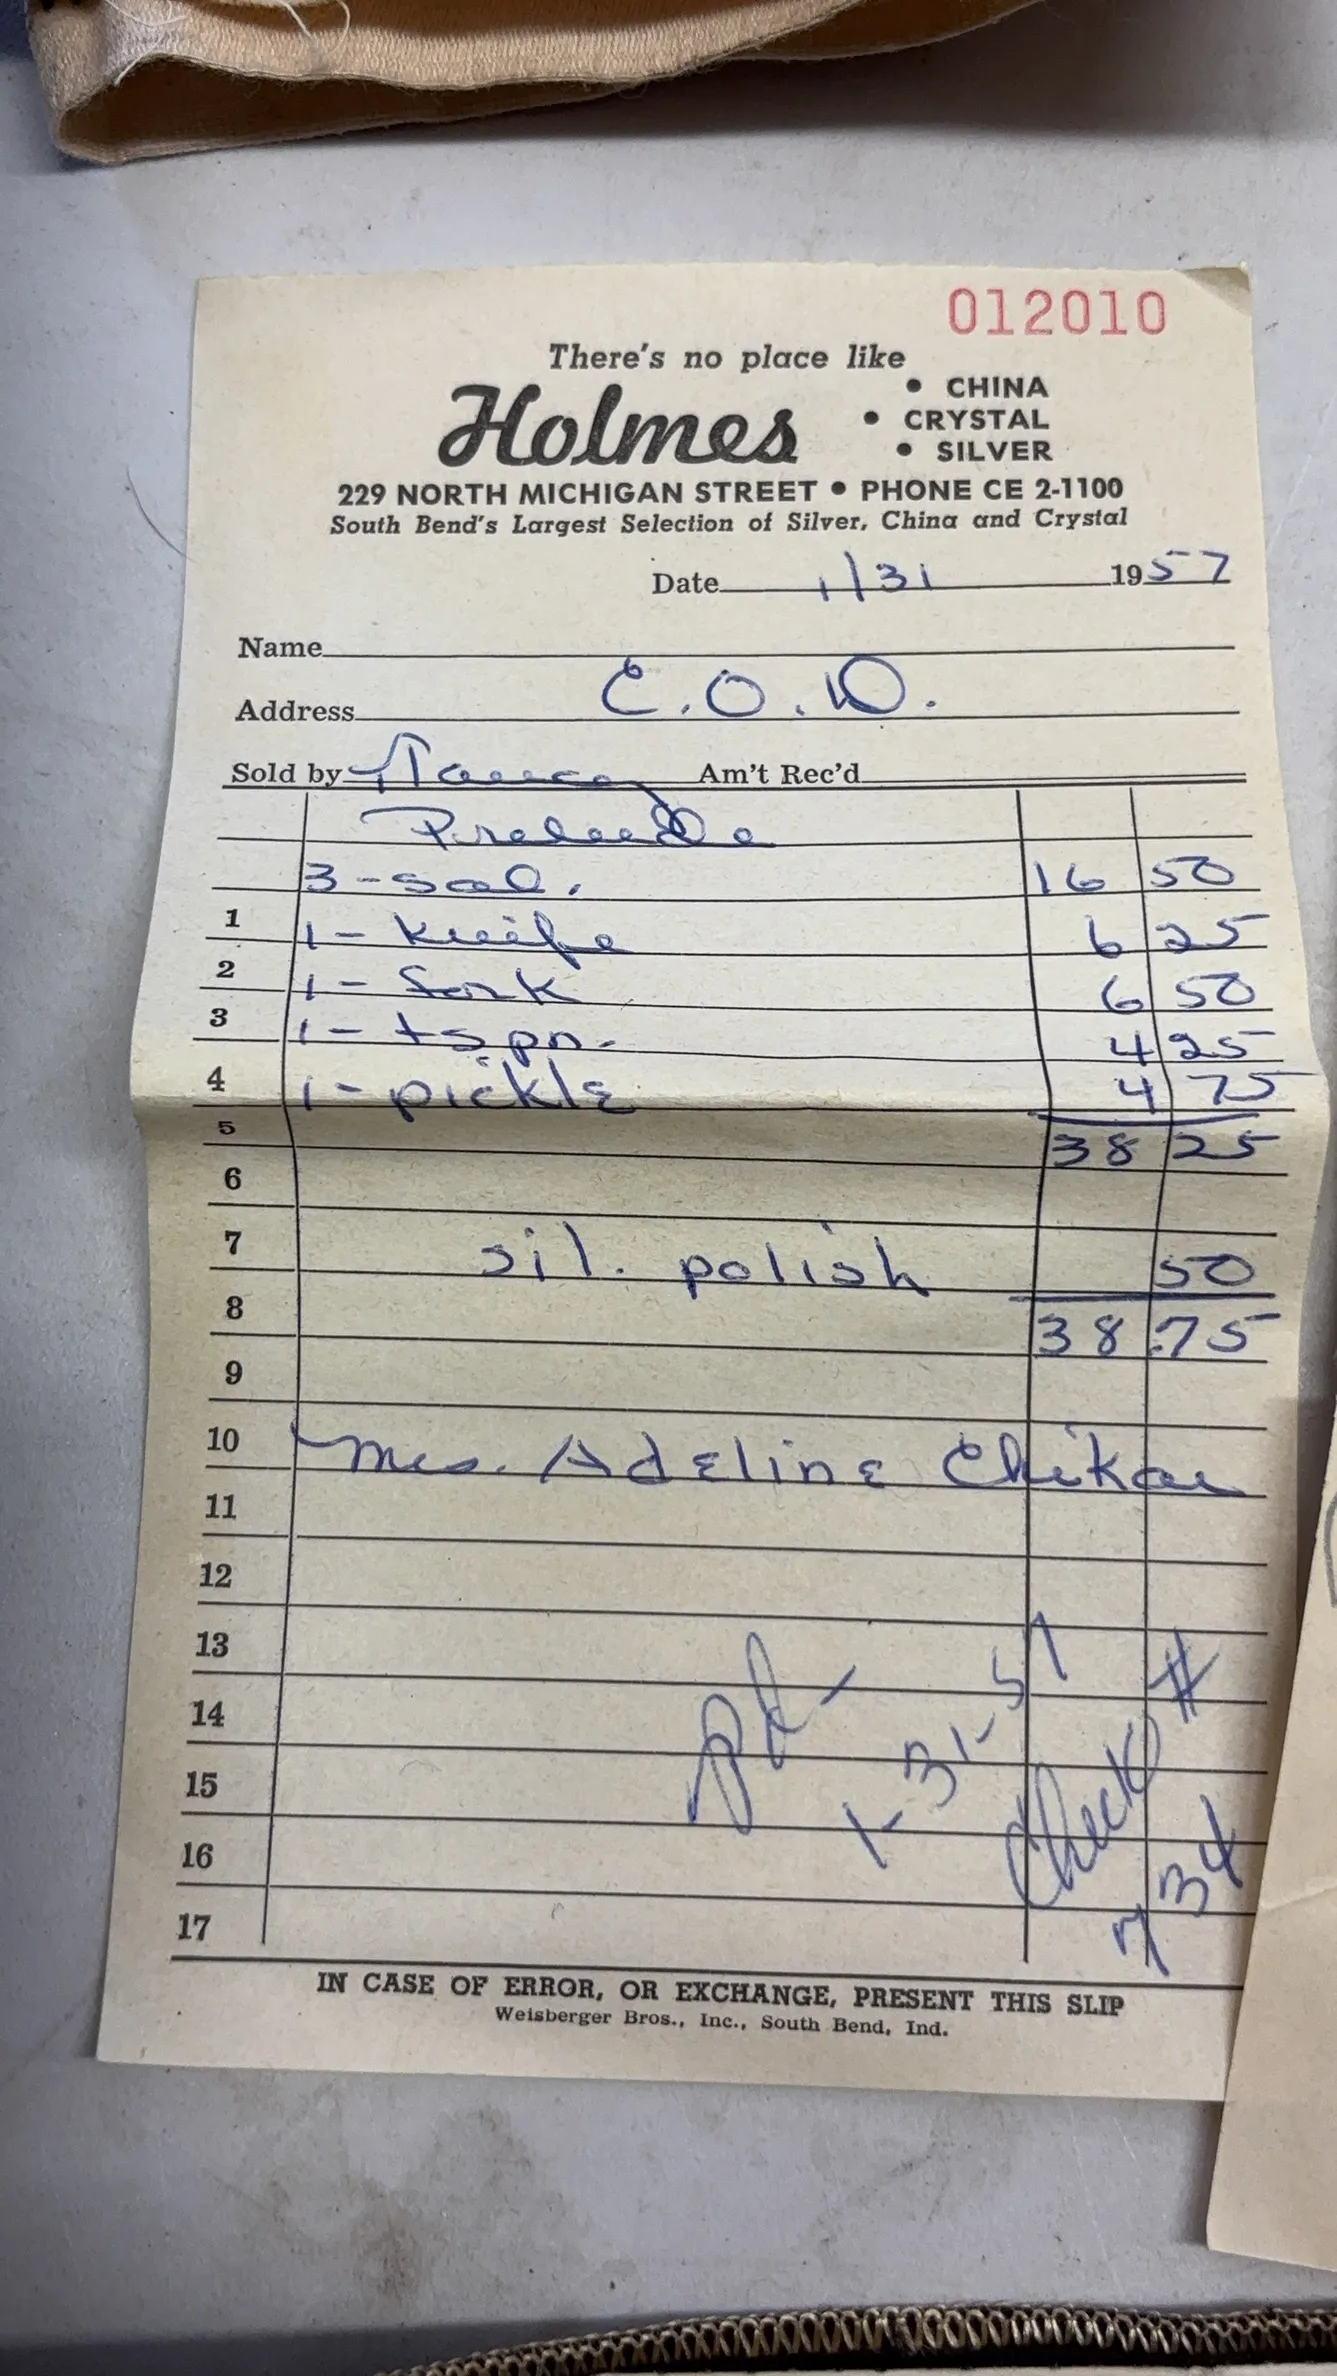 012010
There's no place like
Holmes
• CHINA
• CRYSTAL
• SILVER
229 NORTH MICHIGAN STREET • PHONE CE 2-1100
South Bend's Largest Selection of Silver, China and Crystal
Date 1/31 1957
Name
Address C.O.D.
Sold by Am't Rec'd
Prelude
3-sal. 16 50
1 1-knife 6 25
2 1-fork 6 50
3 1-tspn. 4 25
4 1-pickle 4 75
5 38 25
6
7 sil. polish 50
8 38.75
9
10 Mrs. Adeline
11
12
13
14
15
16
17
pd-
1-31-57
Check #
734
IN CASE OF ERROR, OR EXCHANGE, PRESENT THIS SLIP
Weisberger Bros., Inc., South Bend, Ind.